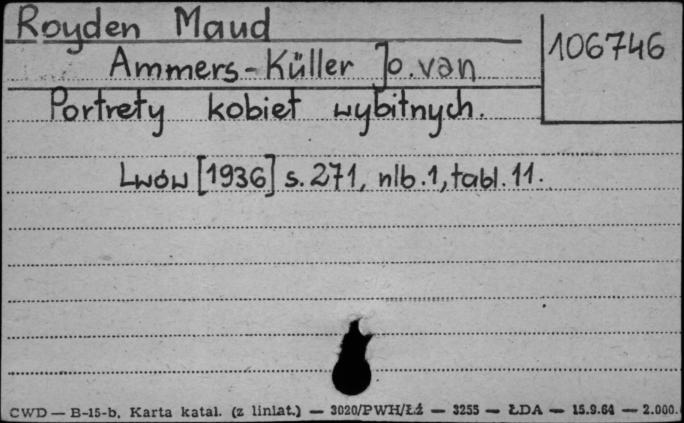 Royden Maud
106746
Ammers-Küller Jo.van
Portrety kobiet wybitnych.
Lwów [1936] s. 271, nlb.1, tabl. 11.
CWD — B-15-b. Karta katal. (z liniat.) — 3020/PWH/Łź — 3255 — ŁDA — 15.9.64 — 2.000.